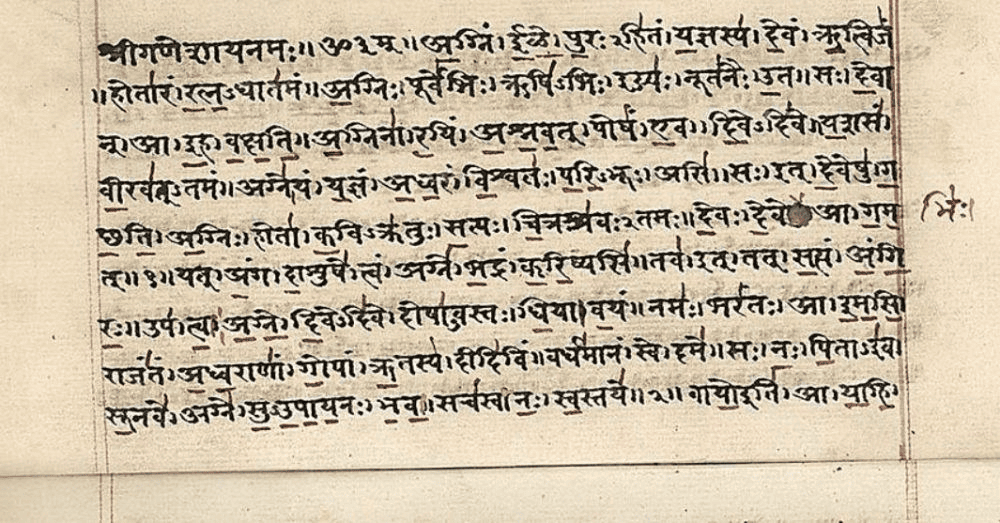 श्रीगणेशायनमः॥ ॐ३म्॥ अ॒ग्निं। ई॒ळे॒। पु॒रःऽहि॑तं। य॒ज्ञस्य॑। दे॒वं। ऋ॒त्विजं॑
॥होता॑रं। र॒त्न॒ऽधात॑मं॥ अ॒ग्निः। पूर्वे॑भिः। ऋषि॑ऽभिः। ईड्यः॑। नूत॑नैः। उ॒त॥ सः। दे॒वा
न्। आ। इ॒ह। व॒क्ष॒ति॒॥ अ॒ग्निना॑। र॒यिं। अ॒श्न॒व॒त्। पोषं॑। ए॒व। दि॒वेऽदि॑वे॥ य॒शसं॑
वी॒रव॑त्ऽतमं॥ अग्ने॑। यं। य॒ज्ञं। अ॒ध्व॒रं। वि॒श्वतः॑। प॒रि॒ऽभूः। असि॑॥ सः। इत्। दे॒वेषु॑। ग॒
च्छ॒ति॒। अ॒ग्निः। होता॑। क॒विऽक्र॑तुः। स॒त्यः। चि॒त्रश्र॑वःऽतमः॥ दे॒वः। दे॒वे आ। ग॒म॒
भिः॑।
त्॥१॥ यत्। अं॒ग। दा॒शुषे॑। त्वं। अग्ने॑। भ॒द्रं। क॒रि॒ष्यसि॑॥ तव॑। इत्। तत्। स॒त्यं। अं॒गि॒
रः॒॥ उप॑। त्वा॒। अ॒ग्ने॒। दि॒वेऽदि॑वे। दोषा॑ऽवस्तः। धि॒या। व॒यं॥ नमः॑। भरं॑तः। आ। इ॒म॒सि॒
राजं॑तं। अ॒ध्व॒राणां॑। गो॒पां। ऋ॒तस्य॑। दीदि॑विं॥ वर्ध॑मानं। स्वे। दमे॑॥ सः। नः॒। पि॒ताऽइ॑व
सू॒नवे॑। अग्ने॑। सु॒ऽउ॒पा॒य॒नः। भ॒व॒॥ सच॑स्व। नः॒। स्व॒स्तये॑॥२॥ वायो॒ इति॑। आ। या॒हि॒।